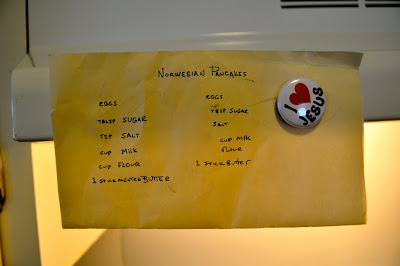 NORWEGIAN PANCAKES
EGGS
TBSP SUGAR
TSP SALT
CUP MILK
CUP FLOUR
1 STICK MELTED BUTTER
EGGS
TBSP SUGAR
SALT
CUP MILK
FLOUR
1 STICK BUTTER
I ♥ JESUS